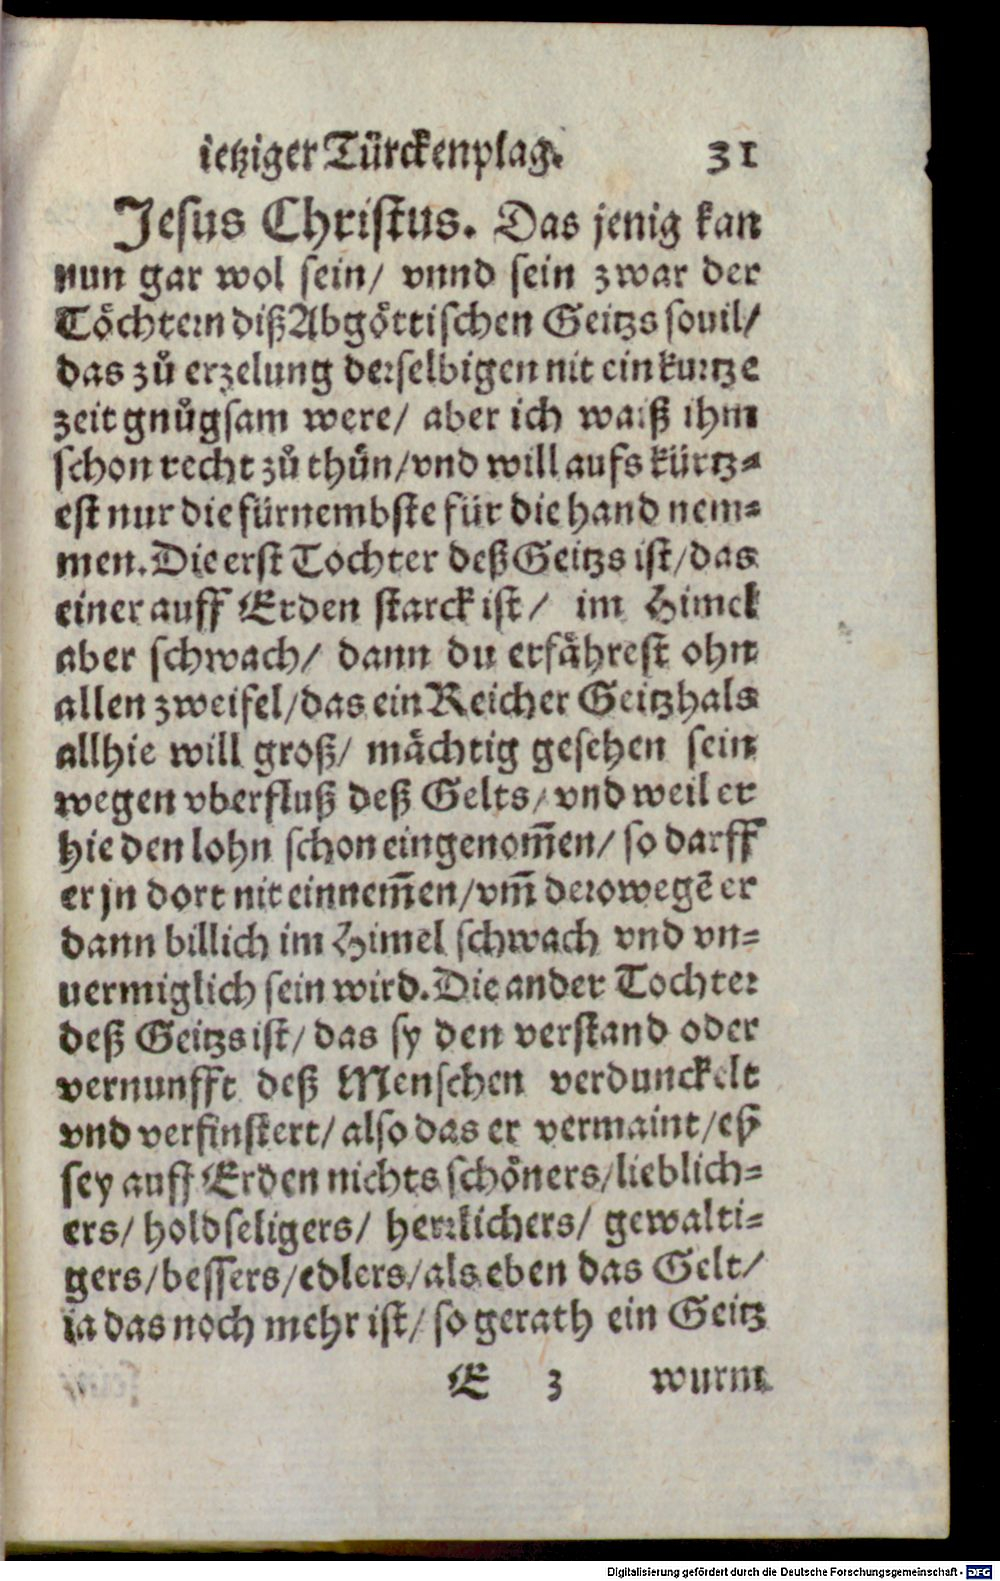 ietziger Türckenplag. 31
Jesus Christus. Das jenig kan
nun gar wol sein/ vnnd sein zwar der
Toͤchtern diß Abgoͤttischen Geitzs souil/
das zů erzelung derselbigen nit ein kurtze
zeit gnůgsam were/ aber ich waiß ihm
schon recht zů thůn/ vnd will aufs kürtz⸗
est nur die fürnembste für die hand nem⸗
men. Die erst Tochter deß Geitzs ist/ das
einer auff Erden starck ist/ im Himel
aber schwach/ dann du erfaͤhrest ohn
allen zweifel/ das ein Reicher Geitzhals
allhie will groß/ maͤchtig gesehen sein
wegen vberfluß deß Gelts/ vnd weil er
hie den lohn schon eingenom̄en/ so darff
er jn dort nit einnem̄en/ vm̄ derowegē er
dann billich im Himel schwach vnd vn⸗
uermiglich sein wird. Die ander Tochter
deß Geitzs ist/ das sy den verstand oder
vernunfft deß Menschen verdunckelt
vnd verfinstert/ also das er vermaint/ eß
sey auff Erden nichts schoͤners/ lieblich⸗
ers/ holdseligers/ herrlichers/ gewalti⸗
gers/ bessers/ edlers/ als eben das Gelt/
ia das noch mehr ist/ so gerath ein Geitz
E 3 wurm
Digitalisierung gefördert durch die Deutsche Forschungsgemeinschaft - DFG